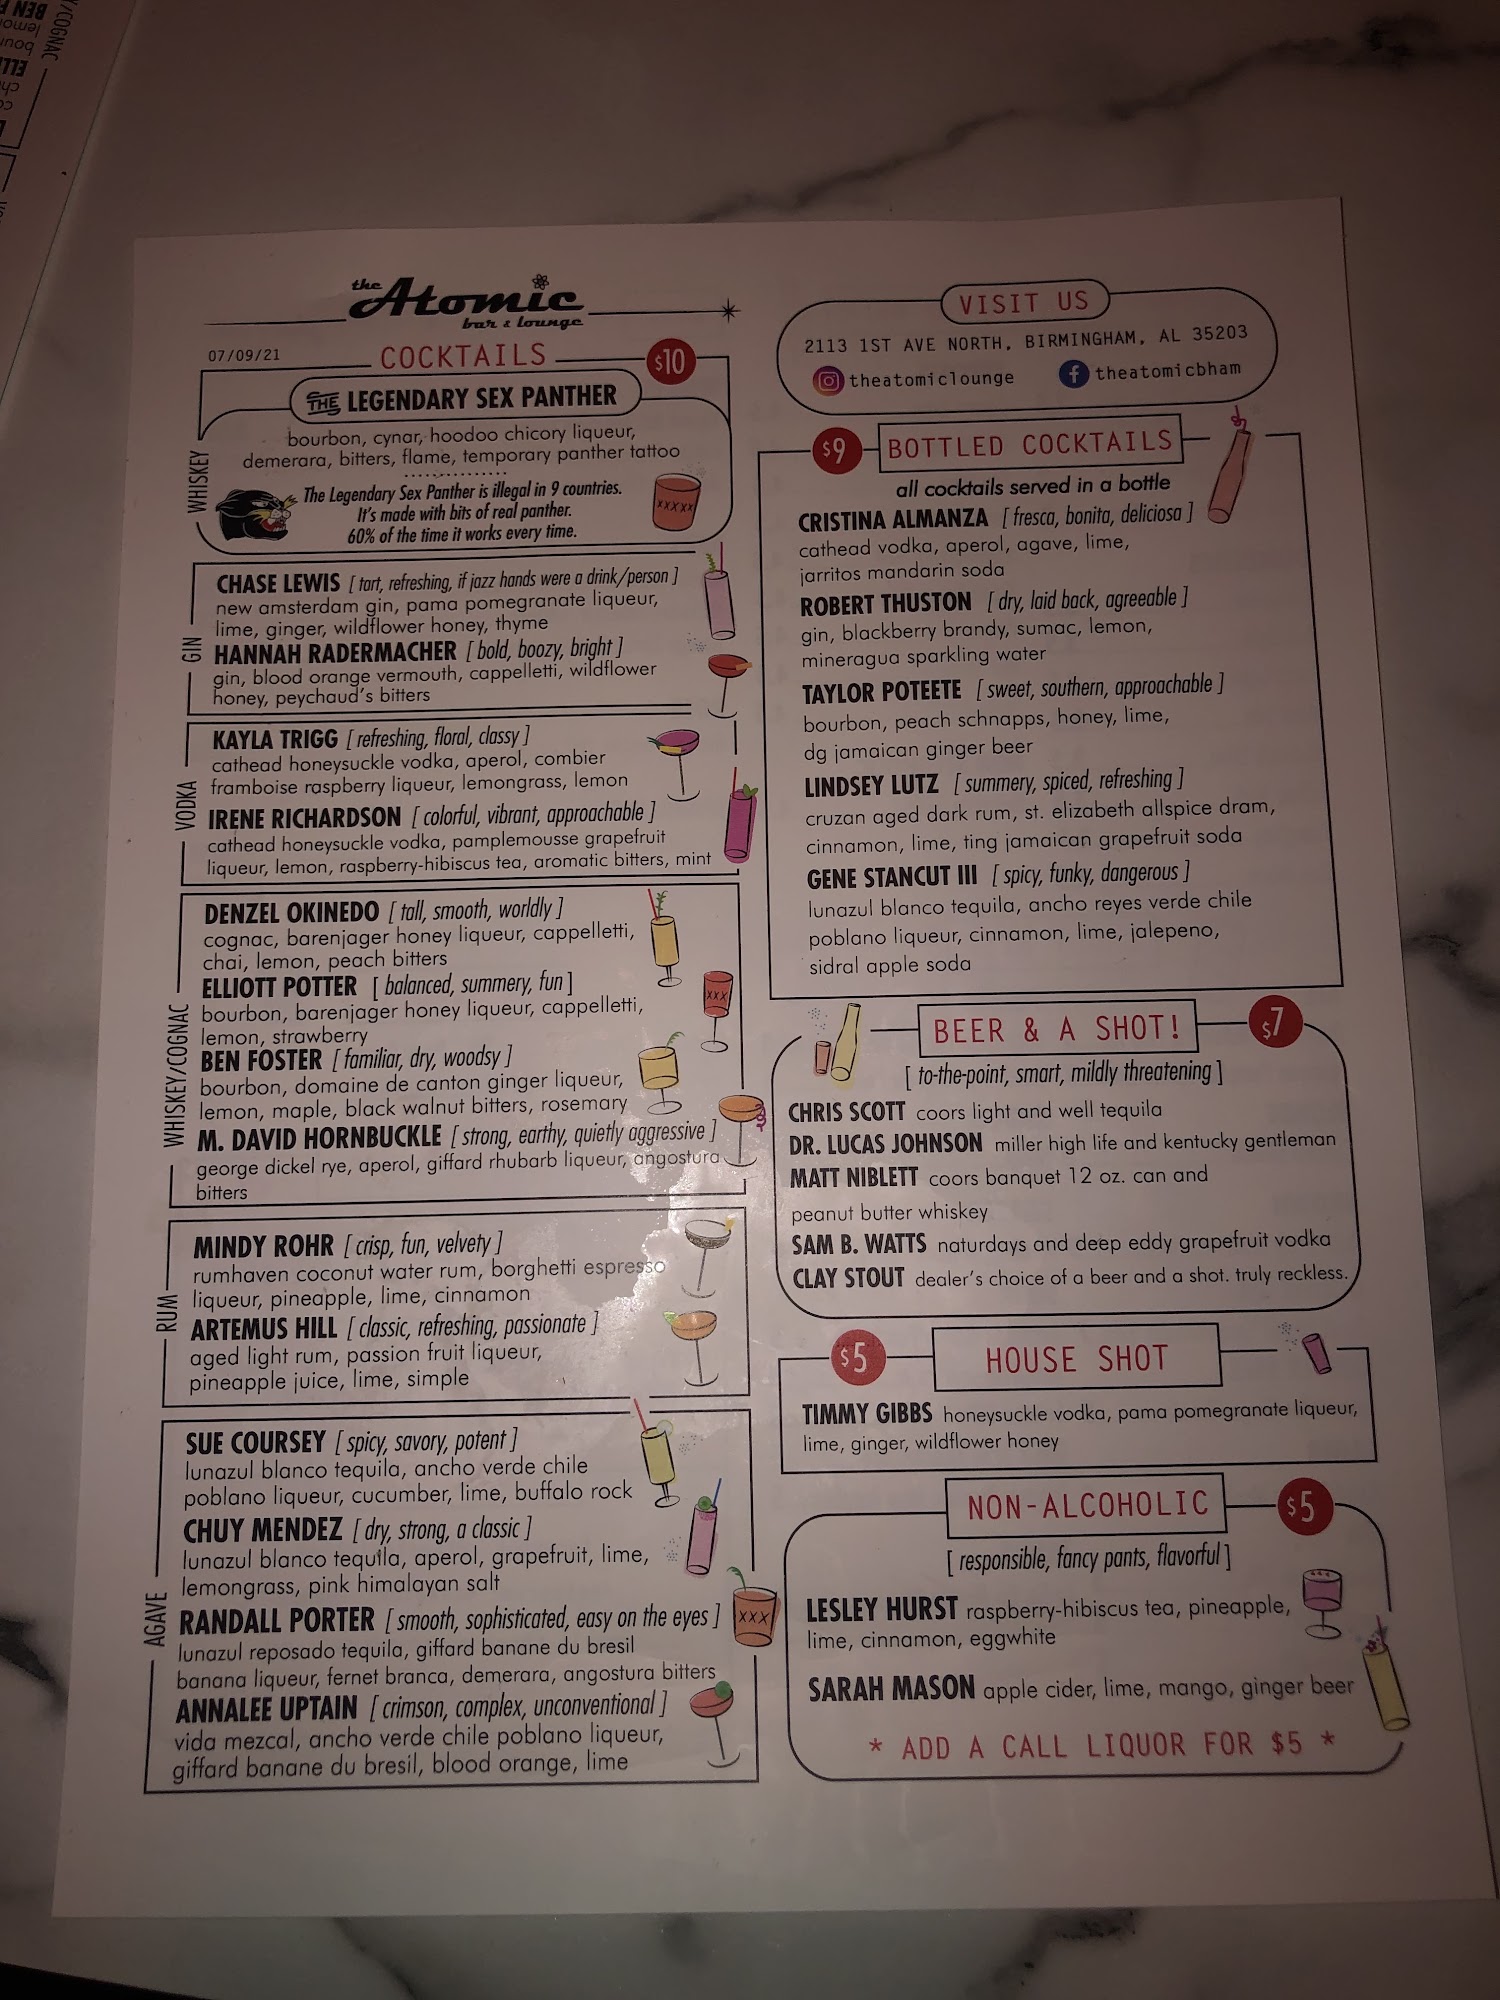 the Atomic
bar & lounge
07/09/21
COCKTAILS
$10
THE LEGENDARY SEX PANTHER
bourbon, cynar, hoodoo chicory liqueur,
demerara, bitters, flame, temporary panther tattoo
The Legendary Sex Panther is illegal in 9 countries.
It's made with bits of real panther.
60% of the time it works every time.
WHISKEY
XXXXX
GIN
CHASE LEWIS [ tart, refreshing, if jazz hands were a drink/person ]
new amsterdam gin, pama pomegranate liqueur,
lime, ginger, wildflower honey, thyme
HANNAH RADERMACHER [ bold, boozy, bright ]
gin, blood orange vermouth, cappelletti, wildflower
honey, peychaud's bitters
VODKA
KAYLA TRIGG [ refreshing, floral, classy ]
cathead honeysuckle vodka, aperol, combier
framboise raspberry liqueur, lemongrass, lemon
IRENE RICHARDSON [ colorful, vibrant, approachable ]
cathead honeysuckle vodka, pamplemousse grapefruit
liqueur, lemon, raspberry-hibiscus tea, aromatic bitters, mint
WHISKEY/COGNAC
DENZEL OKINEDO [ tall, smooth, worldly ]
cognac, barenjager honey liqueur, cappelletti,
chai, lemon, peach bitters
ELLIOTT POTTER [ balanced, summery, fun ]
bourbon, barenjager honey liqueur, cappelletti,
lemon, strawberry
XXX
BEN FOSTER [ familiar, dry, woodsy ]
bourbon, domaine de canton ginger liqueur,
lemon, maple, black walnut bitters, rosemary
M. DAVID HORNBUCKLE [ strong, earthy, quietly aggressive ]
george dickel rye, aperol, giffard rhubarb liqueur, angostura
bitters
RUM
MINDY ROHR [ crisp, fun, velvety ]
rumhaven coconut water rum, borghetti espresso
liqueur, pineapple, lime, cinnamon
ARTEMUS HILL [ classic, refreshing, passionate ]
aged light rum, passion fruit liqueur,
pineapple juice, lime, simple
AGAVE
SUE COURSEY [ spicy, savory, potent ]
lunazul blanco tequila, ancho verde chile
poblano liqueur, cucumber, lime, buffalo rock
CHUY MENDEZ [ dry, strong, a classic ]
lunazul blanco tequila, aperol, grapefruit, lime,
lemongrass, pink himalayan salt
RANDALL PORTER [ smooth, sophisticated, easy on the eyes ]
lunazul reposado tequila, giffard banane du bresil
banana liqueur, fernet branca, demerara, angostura bitters
XXX
ANNALEE UPTAIN [ crimson, complex, unconventional ]
vida mezcal, ancho verde chile poblano liqueur,
giffard banane du bresil, blood orange, lime
VISIT US
2113 1ST AVE NORTH, BIRMINGHAM, AL 35203
theatomiclounge
theatomicbham
$9
BOTTLED COCKTAILS
all cocktails served in a bottle
CRISTINA ALMANZA [ fresca, bonita, deliciosa ]
cathead vodka, aperol, agave, lime,
jarritos mandarin soda
ROBERT THUSTON [ dry, laid back, agreeable ]
gin, blackberry brandy, sumac, lemon,
mineragua sparkling water
TAYLOR POTEETE [ sweet, southern, approachable ]
bourbon, peach schnapps, honey, lime,
dg jamaican ginger beer
LINDSEY LUTZ [ summery, spiced, refreshing ]
cruzan aged dark rum, st. elizabeth allspice dram,
cinnamon, lime, ting jamaican grapefruit soda
GENE STANCUT III [ spicy, funky, dangerous ]
lunazul blanco tequila, ancho reyes verde chile
poblano liqueur, cinnamon, lime, jalepeno,
sidral apple soda
BEER & A SHOT!
$7
[ to-the-point, smart, mildly threatening ]
CHRIS SCOTT coors light and well tequila
DR. LUCAS JOHNSON miller high life and kentucky gentleman
MATT NIBLETT coors banquet 12 oz. can and
peanut butter whiskey
SAM B. WATTS naturdays and deep eddy grapefruit vodka
CLAY STOUT dealer's choice of a beer and a shot. truly reckless.
$5
HOUSE SHOT
TIMMY GIBBS honeysuckle vodka, pama pomegranate liqueur,
lime, ginger, wildflower honey
NON-ALCOHOLIC
$5
[ responsible, fancy pants, flavorful ]
LESLEY HURST raspberry-hibiscus tea, pineapple,
lime, cinnamon, eggwhite
SARAH MASON apple cider, lime, mango, ginger beer
* ADD A CALL LIQUOR FOR $5 *